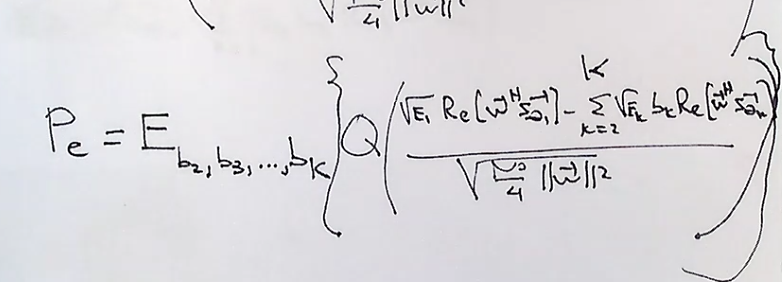 √ 4 ||w||²
P_e = E_{b_2, b_3, ..., b_K} { Q ( (√E_1 Re[w⃗^H s⃗_{θ_1}] - Σ_{k=2}^{K} √E_k b_k Re[w⃗^H s⃗_{θ_k}]) / √(N_0/4 ||w⃗||²) ) }